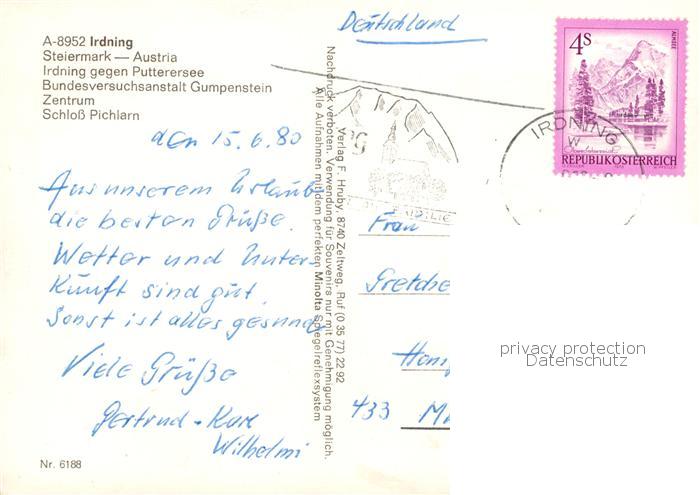 A-8952 Irdning
Steiermark — Austria
Irdning gegen Putterersee
Bundesversuchsanstalt Gumpenstein
Zentrum
Schloß Pichlarn
den 15.6.80
Aus unserem Urlaub
die besten Grüße.
Wetter und Unter-
kunft sind gut.
Sonst ist alles gesund
Viele Grüße
Gertrud + Karl
Wilhelmi
Nr. 6188
Verlag F. Hruby, 8740 Zeltweg, Ruf (0 35 77) 22 92
Nachdruck verboten. Verwendung für Souvenirs nur mit Genehmigung möglich.
Alle Aufnahmen mit dem perfekten Minolta Spiegelreflexsystem
Deutschland
4S
ALMSEE
REPUBLIK ÖSTERREICH
IRDNING
Frau
Gretche
433
privacy protection
Datenschutz